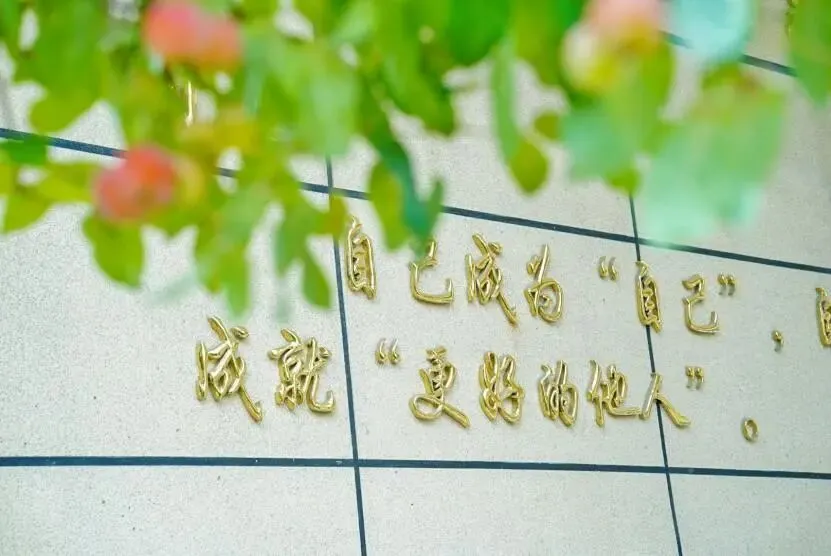 自己成为“自己”，自
成就“更好的他人”。